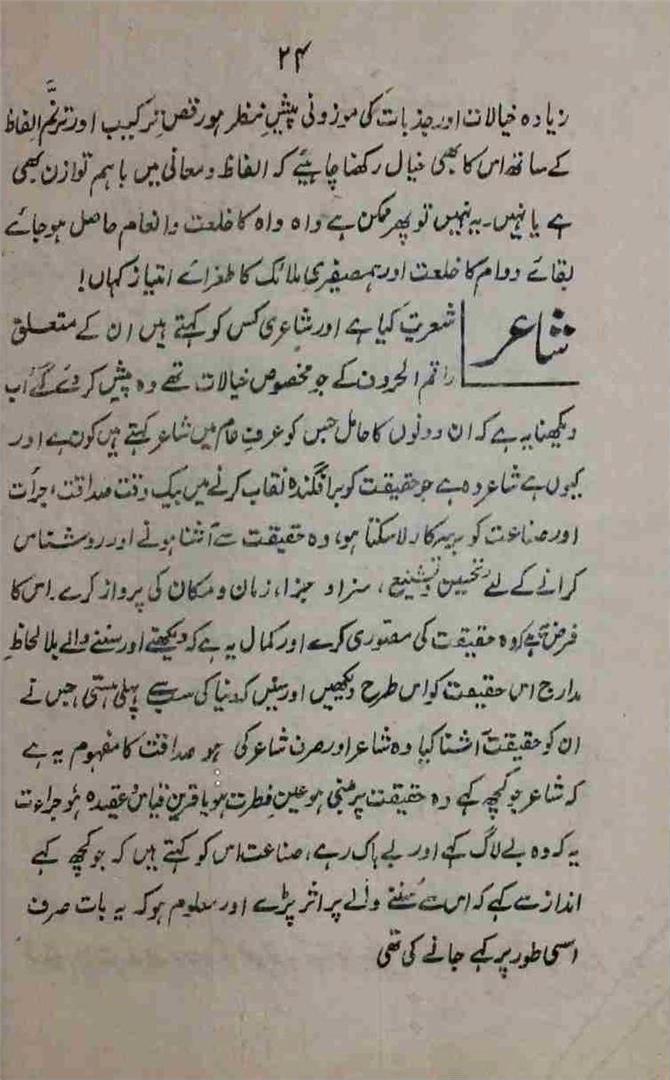 ۲۴
زیادہ خیالات اور جذبات کی موزونی پیشِ نظر ہو رقصِ ترکیب اور ترنّمِ الفاظ
کے ساتھ اس کا بھی خیال رکھنا چاہیئے کہ الفاظ و معانی میں باہم توازن بھی
ہے یا نہیں۔ یہ نہیں تو پھر ممکن ہے واہ واہ کا خلعت و انعام حاصل ہو جائے
بقائے دوام کا خلعت اور ہمصفیریٔ ملائک کا طغرائے امتیاز کہاں!
شاعر
شعریت کیا ہے اور شاعری کس کو کہتے ہیں ان کے متعلق
راقم الحروف کے جو مخصوص خیالات تھے وہ پیش کر دئے گئے اب
دیکھنا یہ ہے کہ ان دونوں کا حامل جس کو عرفِ عام میں شاعر کہتے ہیں کون ہے اور
کیوں ہے شاعر وہ ہے جو حقیقت کو برافگندہ نقاب کرنے میں بیک وقت صداقت، جرأت
اور صناعت کو برسرکار لا سکتا ہو، وہ حقیقت سے آشنا ہونے اور روشناس
کرانے کے لئے تحسین و تشنیع، سزا و جزا، زمان و مکان کی پرواز کرے۔ اس کا
فرض ہے کہ وہ حقیقت کی مصوّری کرے اور کمال یہ ہے کہ دیکھنے اور سننے والے بلا لحاظِ
مدارج اس حقیقت کو اس طرح دیکھیں اور سنیں کہ دنیا کی سب سے پہلی ہستی جس نے
ان کو حقیقت آشنا کیا وہ شاعر اور صرف شاعر کی ہو صداقت کا مفہوم یہ ہے
کہ شاعر جو کچھ کہے وہ حقیقت پر مبنی ہو عینِ فطرت ہو یا قرینِ قیاس عقیدہ ہو جراءت
یہ کہ وہ بے لاگ کہے اور بے باک رہے، صناعت اس کو کہتے ہیں کہ جو کچھ کہے
انداز سے کہے کہ اس سے سننے والے پر اثر پڑے اور معلوم ہو کہ یہ بات صرف
اسی طور پر کہے جانے کی تھی